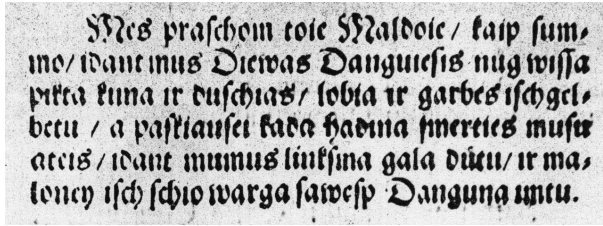 Mes praschom toie Maldoie / kaip sum⸗
mo / idant mus Diewas Danguiesis nug wissa
pikta kuna ir duschias / lobia ir garbes ischgel⸗
betu / a paskiausei kada hadina smerties musu
ateis / idant mumus linksma gala dutu / ir ma⸗
loney isch schio warga sawesp Danguna imtu.